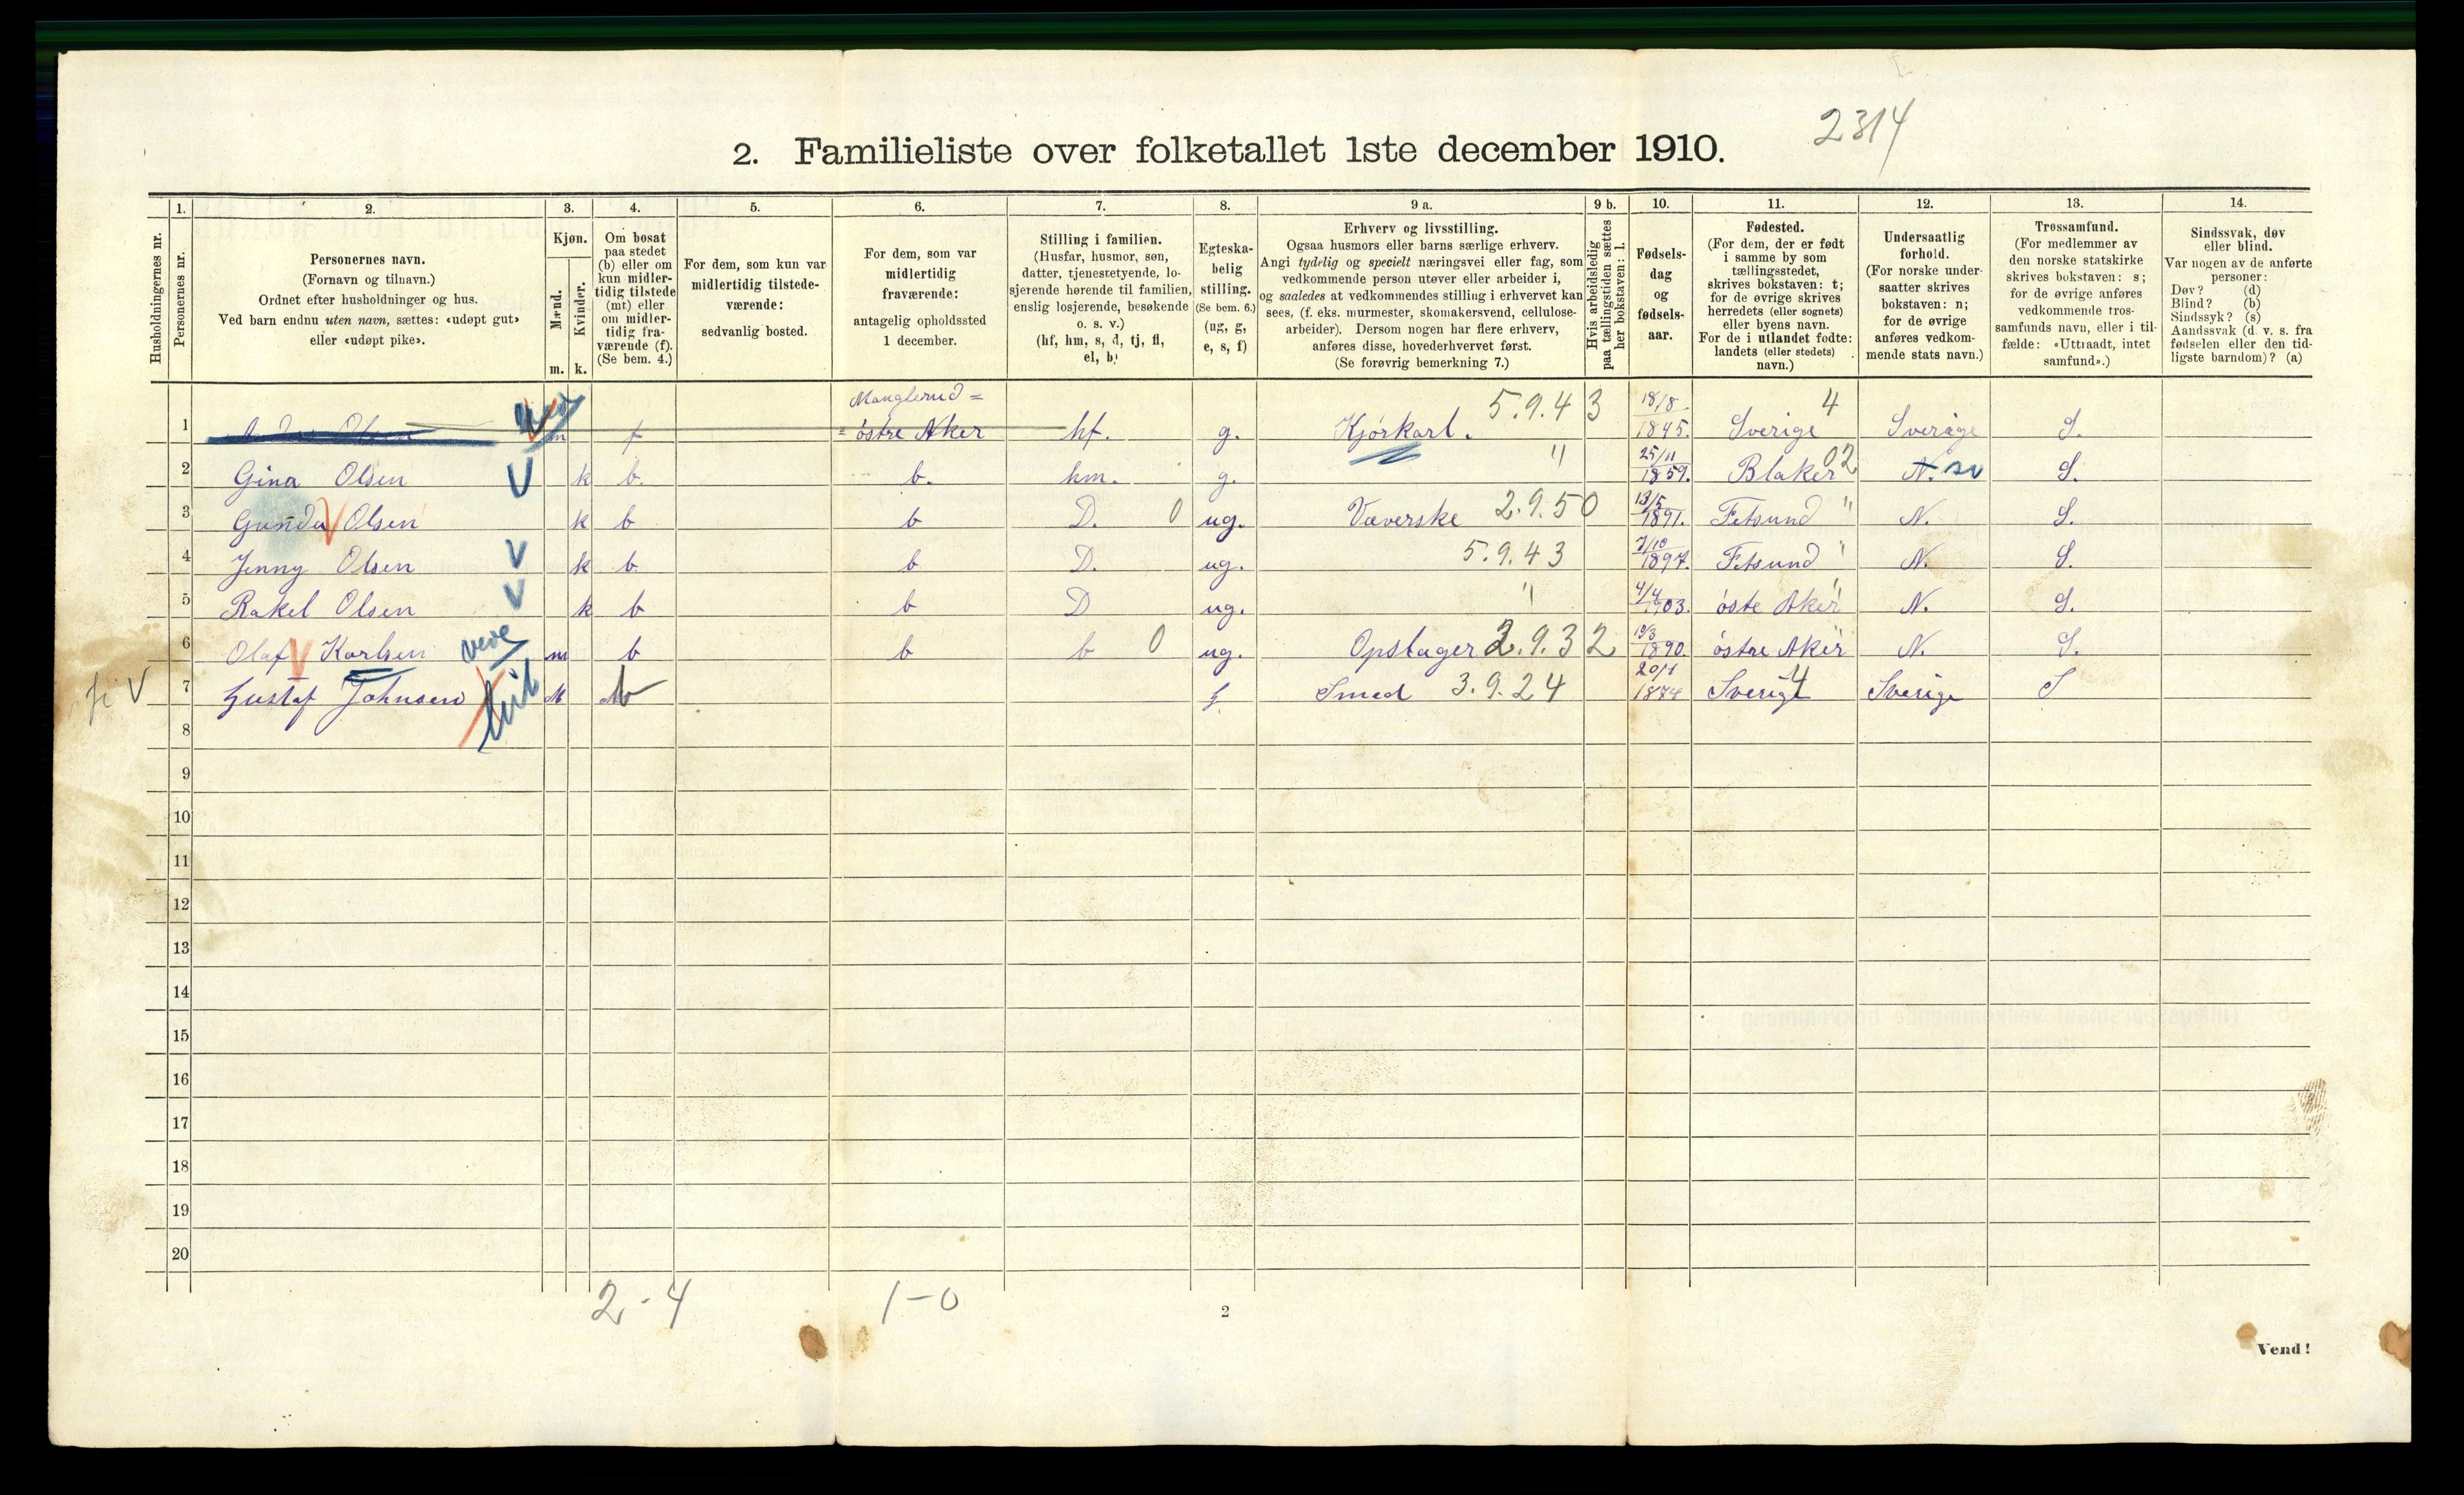 2314
2. Familieliste over folketallet 1ste december 1910.
Husholdningernes nr.
1. Personernes nr.
2. Personernes navn.
(Fornavn og tilnavn.)
Ordnet efter husholdninger og hus.
Ved barn endnu uten navn, sættes: «udøpt gut»
eller «udøpt pike».
3. Kjøn.
Mænd. m.
Kvinder. k.
4. Om bosat
paa stedet
(b) eller om
kun midler-
tidig tilstede
(mt) eller
om midler-
tidig fra-
værende (f).
(Se bem. 4.)
5. For dem, som kun var
midlertidig tilstede-
værende:
sedvanlig bosted.
6. For dem, som var
midlertidig
fraværende:
antagelig opholdssted
1 december.
7. Stilling i familien.
(Husfar, husmor, søn,
datter, tjenestetyende, lo-
sjerende hørende til familien,
enslig losjerende, besøkende
o. s. v.)
(hf, hm, s, d, tj, fl,
el, b)
8. Egteska-
belig
stilling.
(Se bem. 6.)
(ug, g,
e, s, f)
9 a. Erhverv og livsstilling.
Ogsaa husmors eller barns særlige erhverv.
Angi tydelig og specielt næringsvei eller fag, som
vedkommende person utøver eller arbeider i,
og saaledes at vedkommendes stilling i erhvervet kan
sees, (f. eks. murmester, skomakersvend, cellulose-
arbeider). Dersom nogen har flere erhverv,
anføres disse, hovederhvervet først.
(Se forøvrig bemerkning 7.)
9 b. Hvis arbeidsledig
paa tællingstiden sættes
her bokstaven: l.
10. Fødsels-
dag
og
fødsels-
aar.
11. Fødested.
(For dem, der er født
i samme by som
tællingsstedet,
skrives bokstaven: t;
for de øvrige skrives
herredets (eller sognets)
eller byens navn.
For de i utlandet fødte:
landets (eller stedets)
navn.)
12. Undersaatlig
forhold.
(For norske under-
saatter skrives
bokstaven: n;
for de øvrige
anføres vedkom-
mende stats navn.)
13. Trossamfund.
(For medlemmer av
den norske statskirke
skrives bokstaven: s;
for de øvrige anføres
vedkommende tros-
samfunds navn, eller i til-
fælde: «Uttraadt, intet
samfund».)
14. Sindssvak, døv
eller blind.
Var nogen av de anførte
personer:
Døv? (d)
Blind? (b)
Sindssyk? (s)
Aandssvak (d. v. s. fra
fødselen eller den tid-
ligste barndom)? (a)
1 Olsen m f Manglerud = østre Aker hf. g. Kjørkarl. 5.9.43 18/8 1845. Sverige 4 Sverige S.
2 Gina Olsen k b. b. hm. g. " 25/11 1859. Blaker 02 N. S.
3 Gunda Olsen k b b D. 0 ug. Væverske 2.9.50 13/5 1891. Fetsund " N. S.
4 Jenny Olsen k b. b D. ug. 5.9.43 7/10 1897. Fetsund " N. S.
5 Rakel Olsen k b b D ug. " 4/4 1903. øste Aker N. S.
6 Olaf Karlsen m b b b 0 ug. Opstager 2.9.32 19/3 1890. østre Aker " N. S.
7 Gustaf Johnsen M b g Smed 3.9.24 20/1 1874 Sverige 4 Sverige S
8
9
10
11
12
13
14
15
16
17
18
19
20
2-4 1-0
2
Vend!